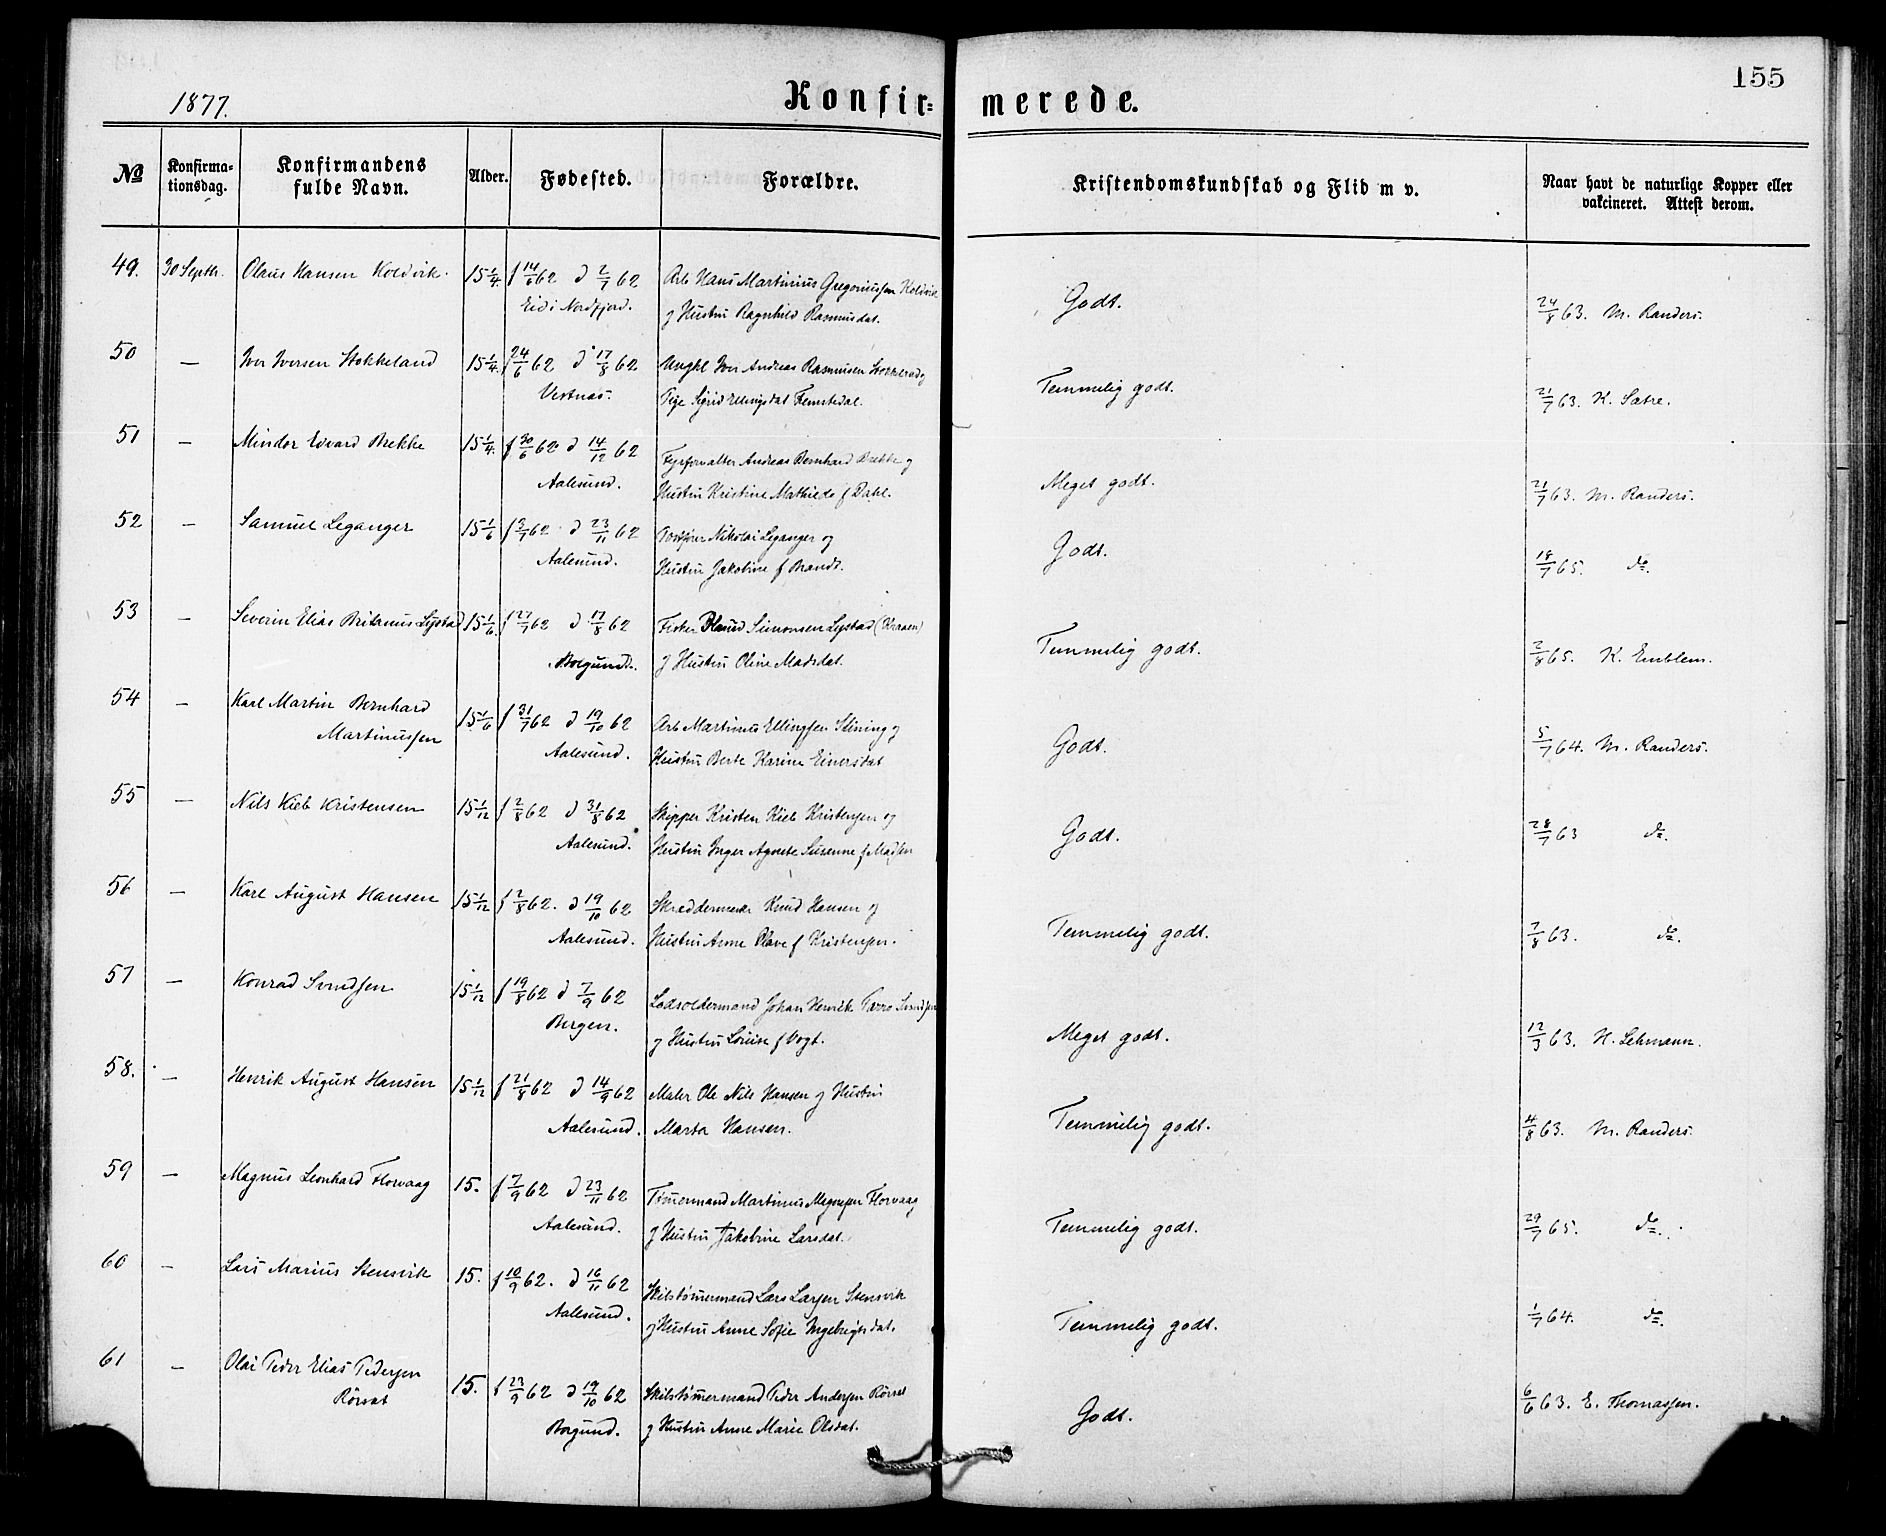 155
1877.
Konfir=merede.
№
Konfirma=
tionsdag.
Konfirmandens
fulde Navn.
Alder.
Fødested.
Forældre.
Kristendomskundskab og Flid m v.
Naar havt de naturlige Kopper eller
vakcineret. Attest derom.
49. 30 Septbr. Olaus Hansen Koldvik. 15 1/4. f 14/6 62 d 2/7 62 Arb Hans Martinius Gregoriussen Koldvik Godt. 24/8 63. M. Randers.
Eid i Nordfjord. og Hustru Ragnhild Rasmusdat.
50 — Iver Iversen Stokkeland 15 1/4. f 24/6 62 d 17/8 62 Ungkl Iver Andreas Rasmusen og Temmelig godt. 2/7 63. K. Sætre.
Vestnæs. Pige Sigrid Ellingsdat
51 — Mindor Edvard Brekke 15 1/4. f 30/6 62 d 14/12 62 Fyrforvalter Andreas Bernhard Brekke og Meget godt. 21/7 63. M. Randers.
Aalesund. Hustru Kristine Mathilde f Dahl.
52 — Samuel Leganger 15 1/6 f 3/7 62 d 23/11 62 Nikolai Leganger og Godt. 18/7 65. do.
Aalesund. Hustru Jakobine f Brandt.
53 — Severin Elias Britanus Lystad 15 1/6. f 27/7 62 d 17/8 62 Fisker Simonsen Lystad (Kraaen) Temmelig godt. 2/8 65. K. Emblem.
Borgund. og Hustru Oline Madsdat.
54 — Karl Martin Bernhard
Martinussen 15 1/6 f 31/7 62 d 19/10 62 Arb Martinus Ellingsen Slining og Godt. 5/7 64. M. Randers.
Aalesund. Hustru Berte Karine Einersdat
55 — Nils Kieb Kristensen 15 1/12 f 2/8 62 d 31/8 62 Skipper Kristen Kieb Kristensen og Godt. 28/7 63 do.
Aalesund. Hustru Inger Agnete Susanne f Madsen
56 — Karl August Hansen 15 1/12 f 2/8 62. d 19/10 62 Skræddermester Knud Hansen og Temmelig godt. 7/8 63. do.
Aalesund. Hustru Anne Olave f Kristensen.
57 — Konrad Svendsen 15 1/12 f 19/8 62 d 7/9 62 Lodsoldermand Johan Henrik Svendsen Meget godt. 12/3 63. H. Lehmann.
Bergen. og Hustru Louise f Vogt.
58. — Henrik August Hansen 15 1/12 f 21/8 62 d 14/9 62 Maler Ole Nils Hansen og Hustru Temmelig godt. 4/8 63. M. Randers.
Aalesund. Marta Hansen.
59 — Magnus Leonhard Florvaag 15. f 7/9 62 d 23/11 62 Tømmermand Martinus Magnusen Florvaag Temmelig godt. 29/7 65. do.
Aalesund. og Hustru Jakobine Larsdat.
60 — Lars Marius Stensvik 15. f 10/9 62. d 16/11 62 Skibstømmermand Lars Larsen Stensvik Temmelig godt. 1/7 64. do.
Aalesund. og Hustru Anne Sofie Ingebrigtsdat.
61 — Olai Peder Elias Pedersen
Rörsæt 15. f 23/9 62 d 19/10 62 Skibstømmermand Peder Andersen Rörset Godt. 6/6 63. E. Thomassen.
Borgund. og Hustru Anne Marie Olsdat.